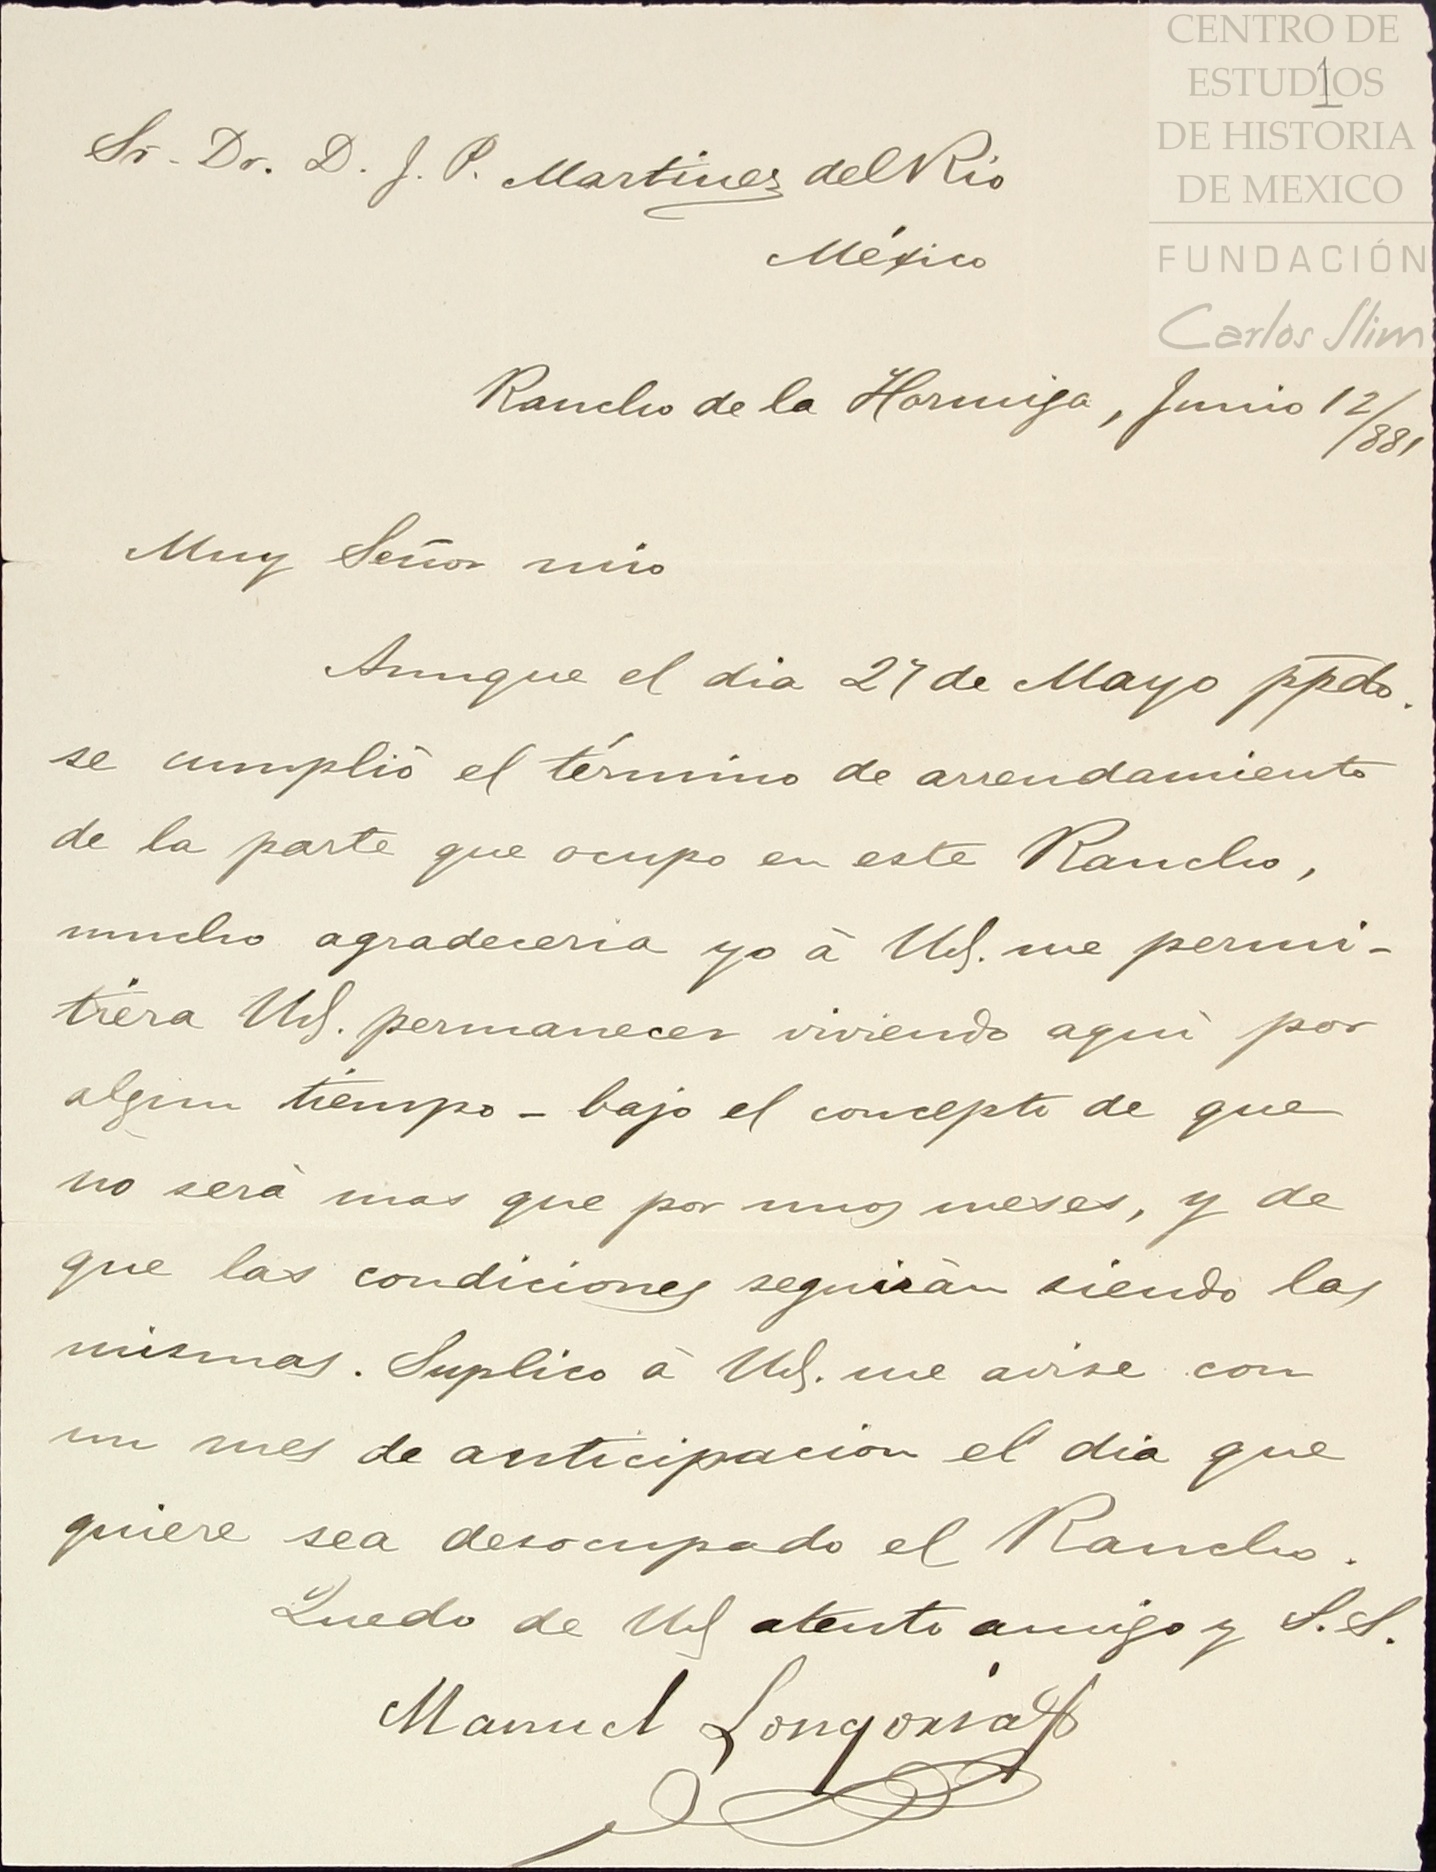 CENTRO DE
ESTUDIOS
DE HISTORIA
DE MEXICO
FUNDACIÓN
Carlos Slim
1
Sr. Dr. D. J. P. Martinez del Rio
México
Rancho de la Hormiga, Junio 12/881
Muy Señor mio
Aunque el dia 27 de Mayo ppdo.
se cumplió el término de arrendamiento
de la parte que ocupo en este Rancho,
mucho agradeceria yo à Ud. me permi-
tiera Ud. permanecer viviendo aquì por
algun tiempo - bajo el concepto de que
no serà mas que por unos meses, y de
que las condiciones seguiràn siendo las
mismas. Suplico à Ud. me avise con
un mes de anticipacion el dia que
quiere sea desocupado el Rancho.
Quedo de Ud atento amigo y S. S.
Manuel Longoria